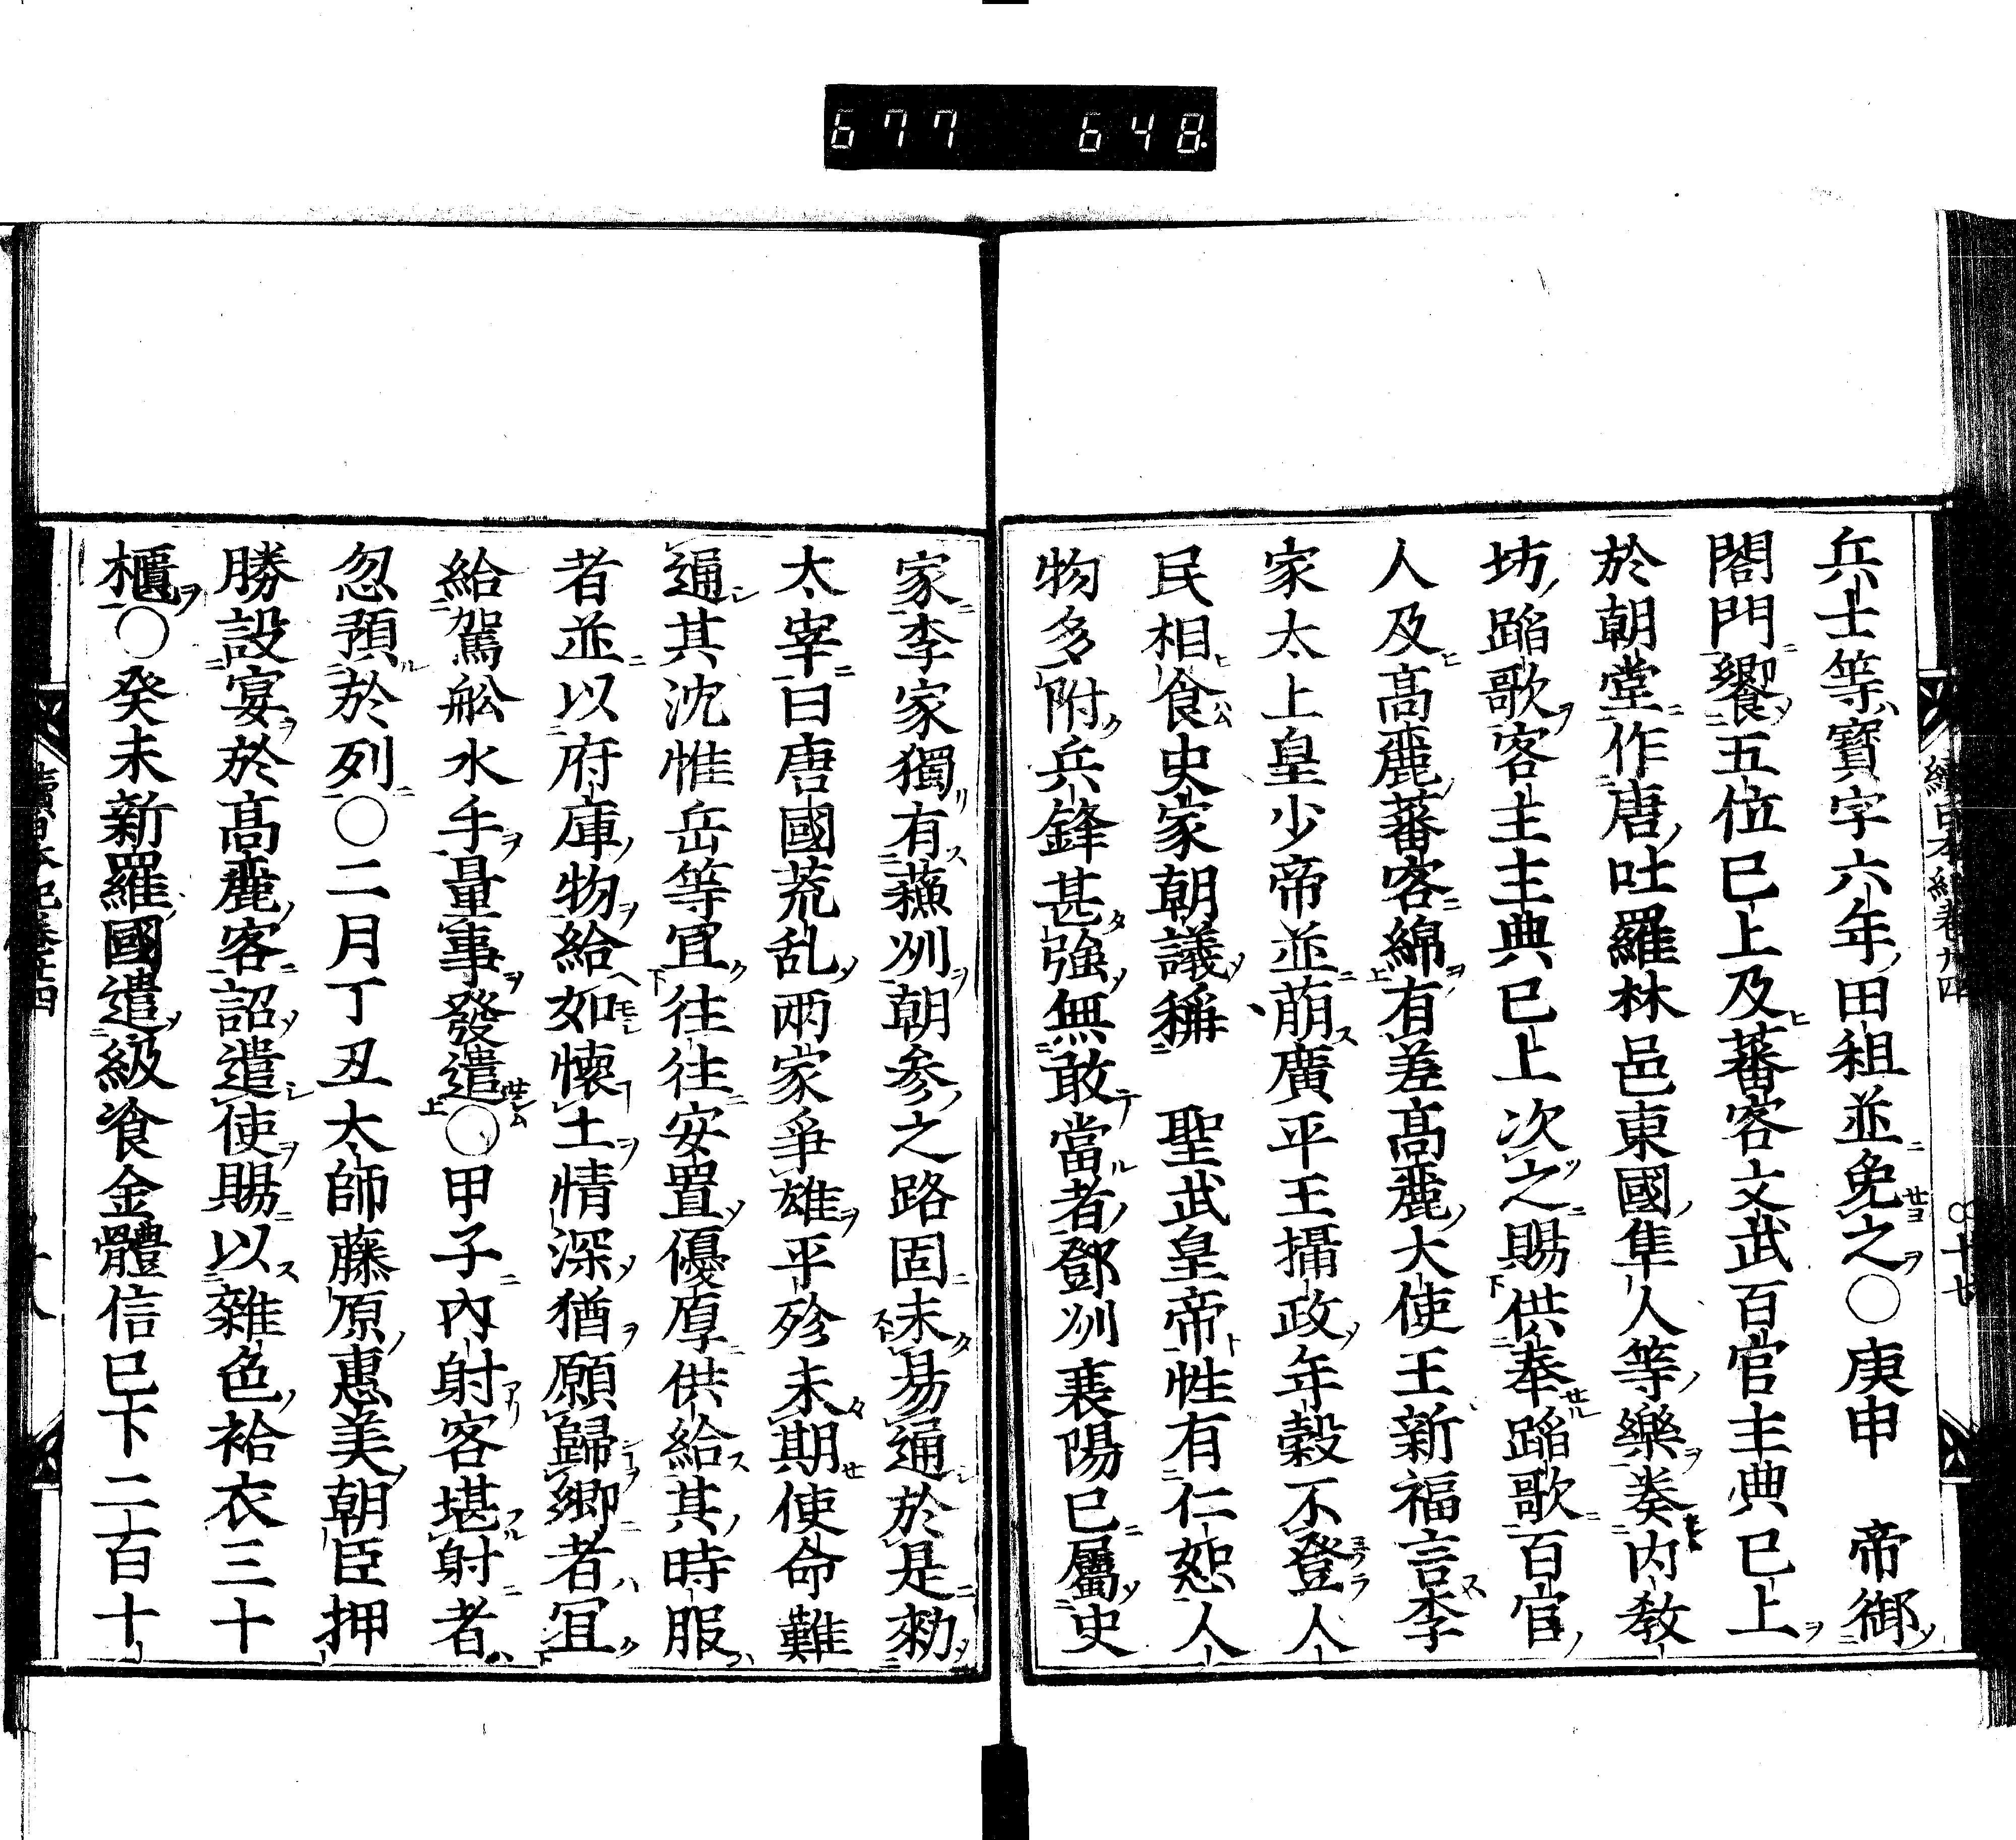 677 648
兵士等寶字六年田租並免之○庚申 帝御
閤門饗五位已上及蕃客文武百官主典已上
於朝堂作唐吐羅林邑東國隼人等樂奏内教
坊蹈歌客主主典已上次之賜供奉蹈歌百官
人及高麗蕃客綿有差高麗大使王新福言李
家太上皇少帝並崩廣平王攝政年穀不登人
民相食史家朝議稱 聖武皇帝性有仁恕人
物多附兵鋒甚強無敢當者鄧州襄陽已屬史
家李家獨有蘓州朝参之路固未易通於是勑
太宰曰唐國荒乱兩家爭雄平殄未期使命難
通其沈惟岳等宜往往安置優厚供給其時服
者並以府庫物給如懷土情深猶願歸郷者宜
給駕舩水手量事發遣○甲子内射客堪射者
忽預於列○二月丁丑大師藤原惠美朝臣押
勝設宴於高麗客詔遣使賜以雜色袷衣三十
櫃○癸未新羅國遣級飡金體信已下二百十